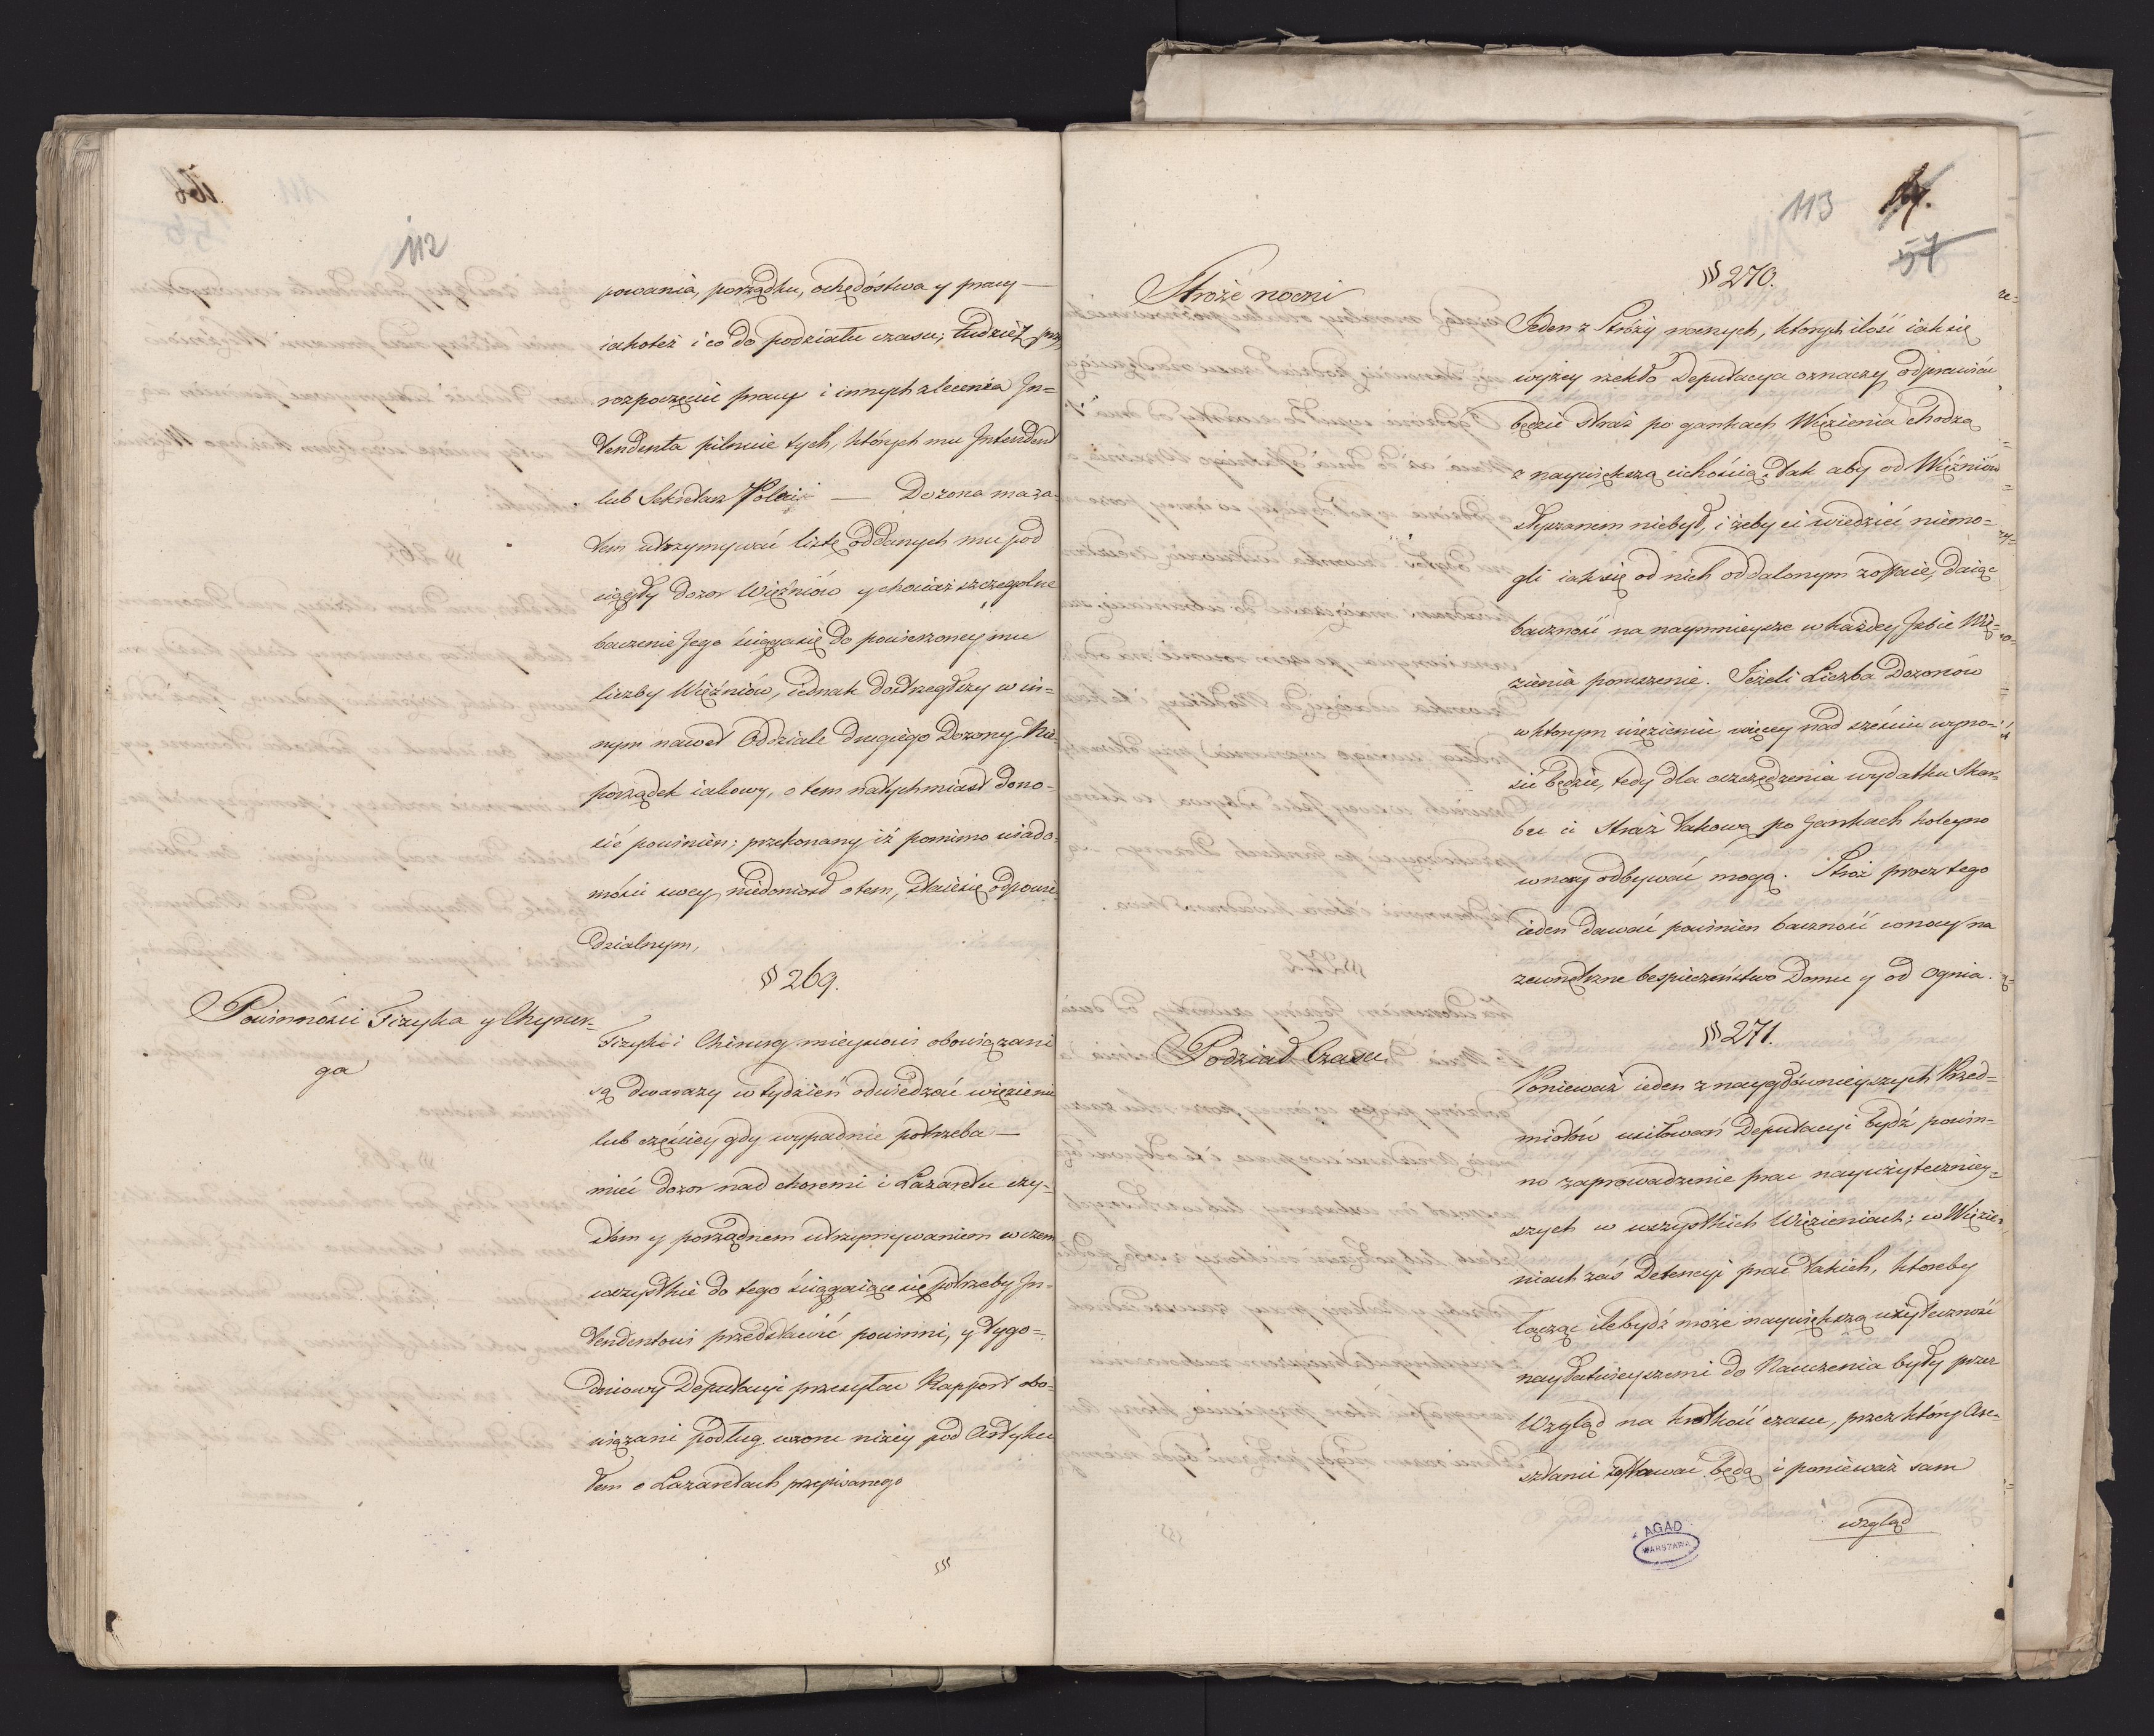 112
powania, porządku, ochędóstwa y pracy —
iakoteż i co do podziału czasu; tudzież przy
rozpoczęciu pracy i innych zlecenia In=
tendenta pilnuie tych, których mu Intendent
lub Sekretarz Policii — Dozorca ma za-
tem utrzymywać listę oddanych mu pod
ciągły dozor Więźniów y chociaż szczegolne
baczenie Jego ściąga się do powierzoney mu
liczby Więźniów, iednak dostrzegłszy w in=
nym nawet Oddziale drugiego Dozorcy Nie-
porządek iakowy, o tem natychmiast dono-
sić powinien; przekonany iż pomimo wiado-
mości swey niedoniosł o tem, staie się odpowie-
dzialnym,
§ 269.
Powinności Fizyka y Chyrur-
ga
Fizyk i Chirurg mieyscowi obowiązani
są dwa razy w tydzień odwiedzać więzienie
lub częściey gdy wypadnie potrzeba —
mieć dozor nad choremi i Lazaretu czy-
stem y porządnem utrzymywaniem w czem
wszystkie do tego ściągaiące się potrzeby In-
tendentowi przedstawić powinni, y tygo=
dniowy Deputacyi przesyłać Rapport obo-
wiązani podług wzoru niżey pod Artyku
łem o Lazaretach przepisanego
113
57
Stróże nocni
§ 270.
Jeden z Stróży nocnych, ktorych ilość iak się
wyżey rzekło Deputacya oznaczy odprawiać
będzie straż po gankach Więzienia chodząc
z naywiększą cichością, tak aby od Więźniów
słyszanem niebył, i żeby ci wiedzieć niemo=
gli iak się od nich oddalonym zostaie, daiąc
baczność na naymnieysze w każdey Izbie Wię-
zienia poruszenie. Jeżeli Liczba Dozorców
w ktorym więzieniu więcey nad sześciu wyno=
sić będzie, tedy dla oszczędzenia wydatku Skar-
bu ci straż takową po Gankach koleyno
w nocy odbywać mogą. Stróż procz tego
ieden dawać powinien baczność w nocy na
zewnętrzne bespieczeństwo Domu y od ognia.
§ 271.
Podział Czasu
Ponieważ ieden z naygłównieyszych Przed=
miotów usiłowań Deputacyi bydź powin-
no zaprowadzenie prac nayużyteczniey=
szych w wszystkich Więzieniach; w Więzie-
niach zaś Detencyi prac takich, ktoreby
łącząc ile bydź może naywiększą użyteczność
nayłatwieyszemi do Nauczenia były przez
Wzgląd na krótkość czasu, przez który Are-
sztanci zostawać będą i ponieważ sam
wzgląd
AGAD
WARSZAWA